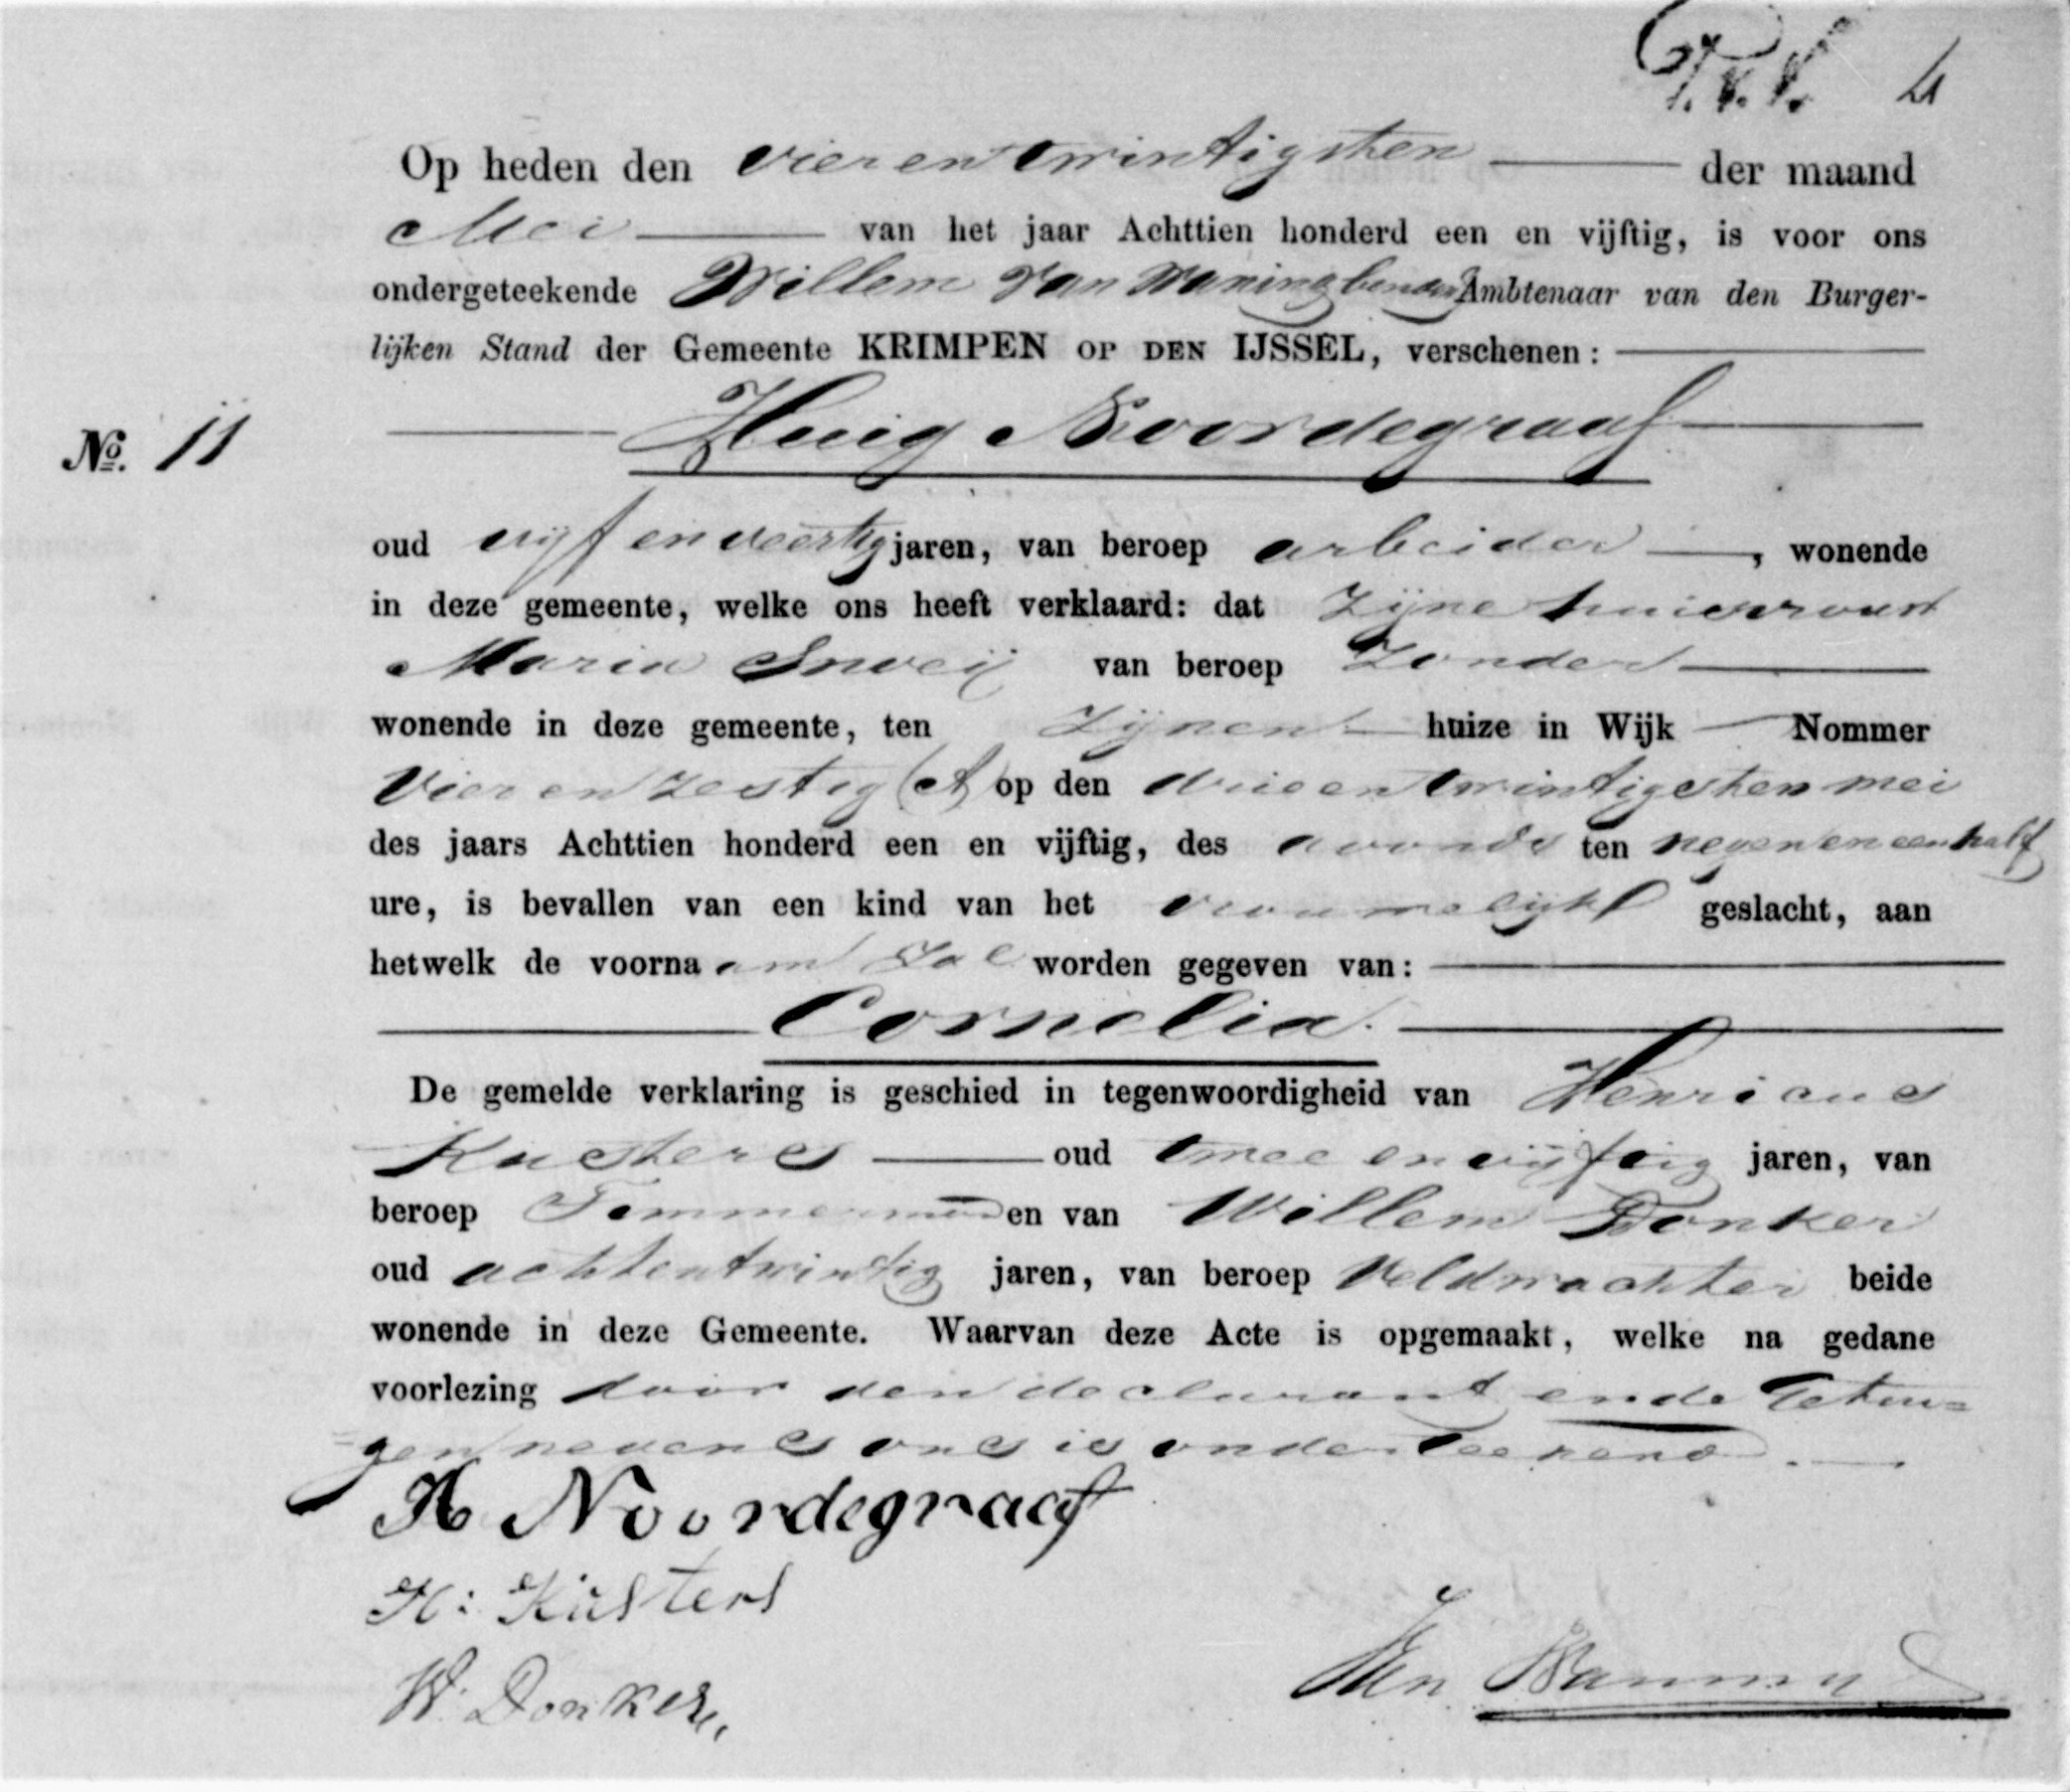 4
Op heden den vierentwintigsten der maand
Mei van het jaar Achttien honderd een en vijftig, is voor ons
ondergeteekende Willem van Ambtenaar van den Burger-
lijken Stand der Gemeente KRIMPEN OP DEN IJSSEL, verschenen:
Huig Noordegraaf
No. 11
oud vijf en veertig jaren, van beroep arbeider, wonende
in deze gemeente, welke ons heeft verklaard: dat zijne huisvrouw
Maria Snoeij van beroep zonder
wonende in deze gemeente, ten zijnen huize in Wijk Nommer
Vier en zestig (A) op den drieentwintigsten mei
des jaars Achttien honderd een en vijftig, des avonds ten negen en een half
ure, is bevallen van een kind van het vrouwelijk geslacht, aan
hetwelk de voornaam zal worden gegeven van:
Cornelia.
De gemelde verklaring is geschied in tegenwoordigheid van Henricus
Kusters oud twee en vijftig jaren, van
beroep Timmerman en van Willem Donker
oud achtentwintig jaren, van beroep Veldwachter beide
wonende in deze Gemeente. Waarvan deze Acte is opgemaakt, welke na gedane
voorlezing door den declarant en de Getui=
=gen nevens ons is onderteekend.
H Noordegraaf
H: Küsters
W. Donker,